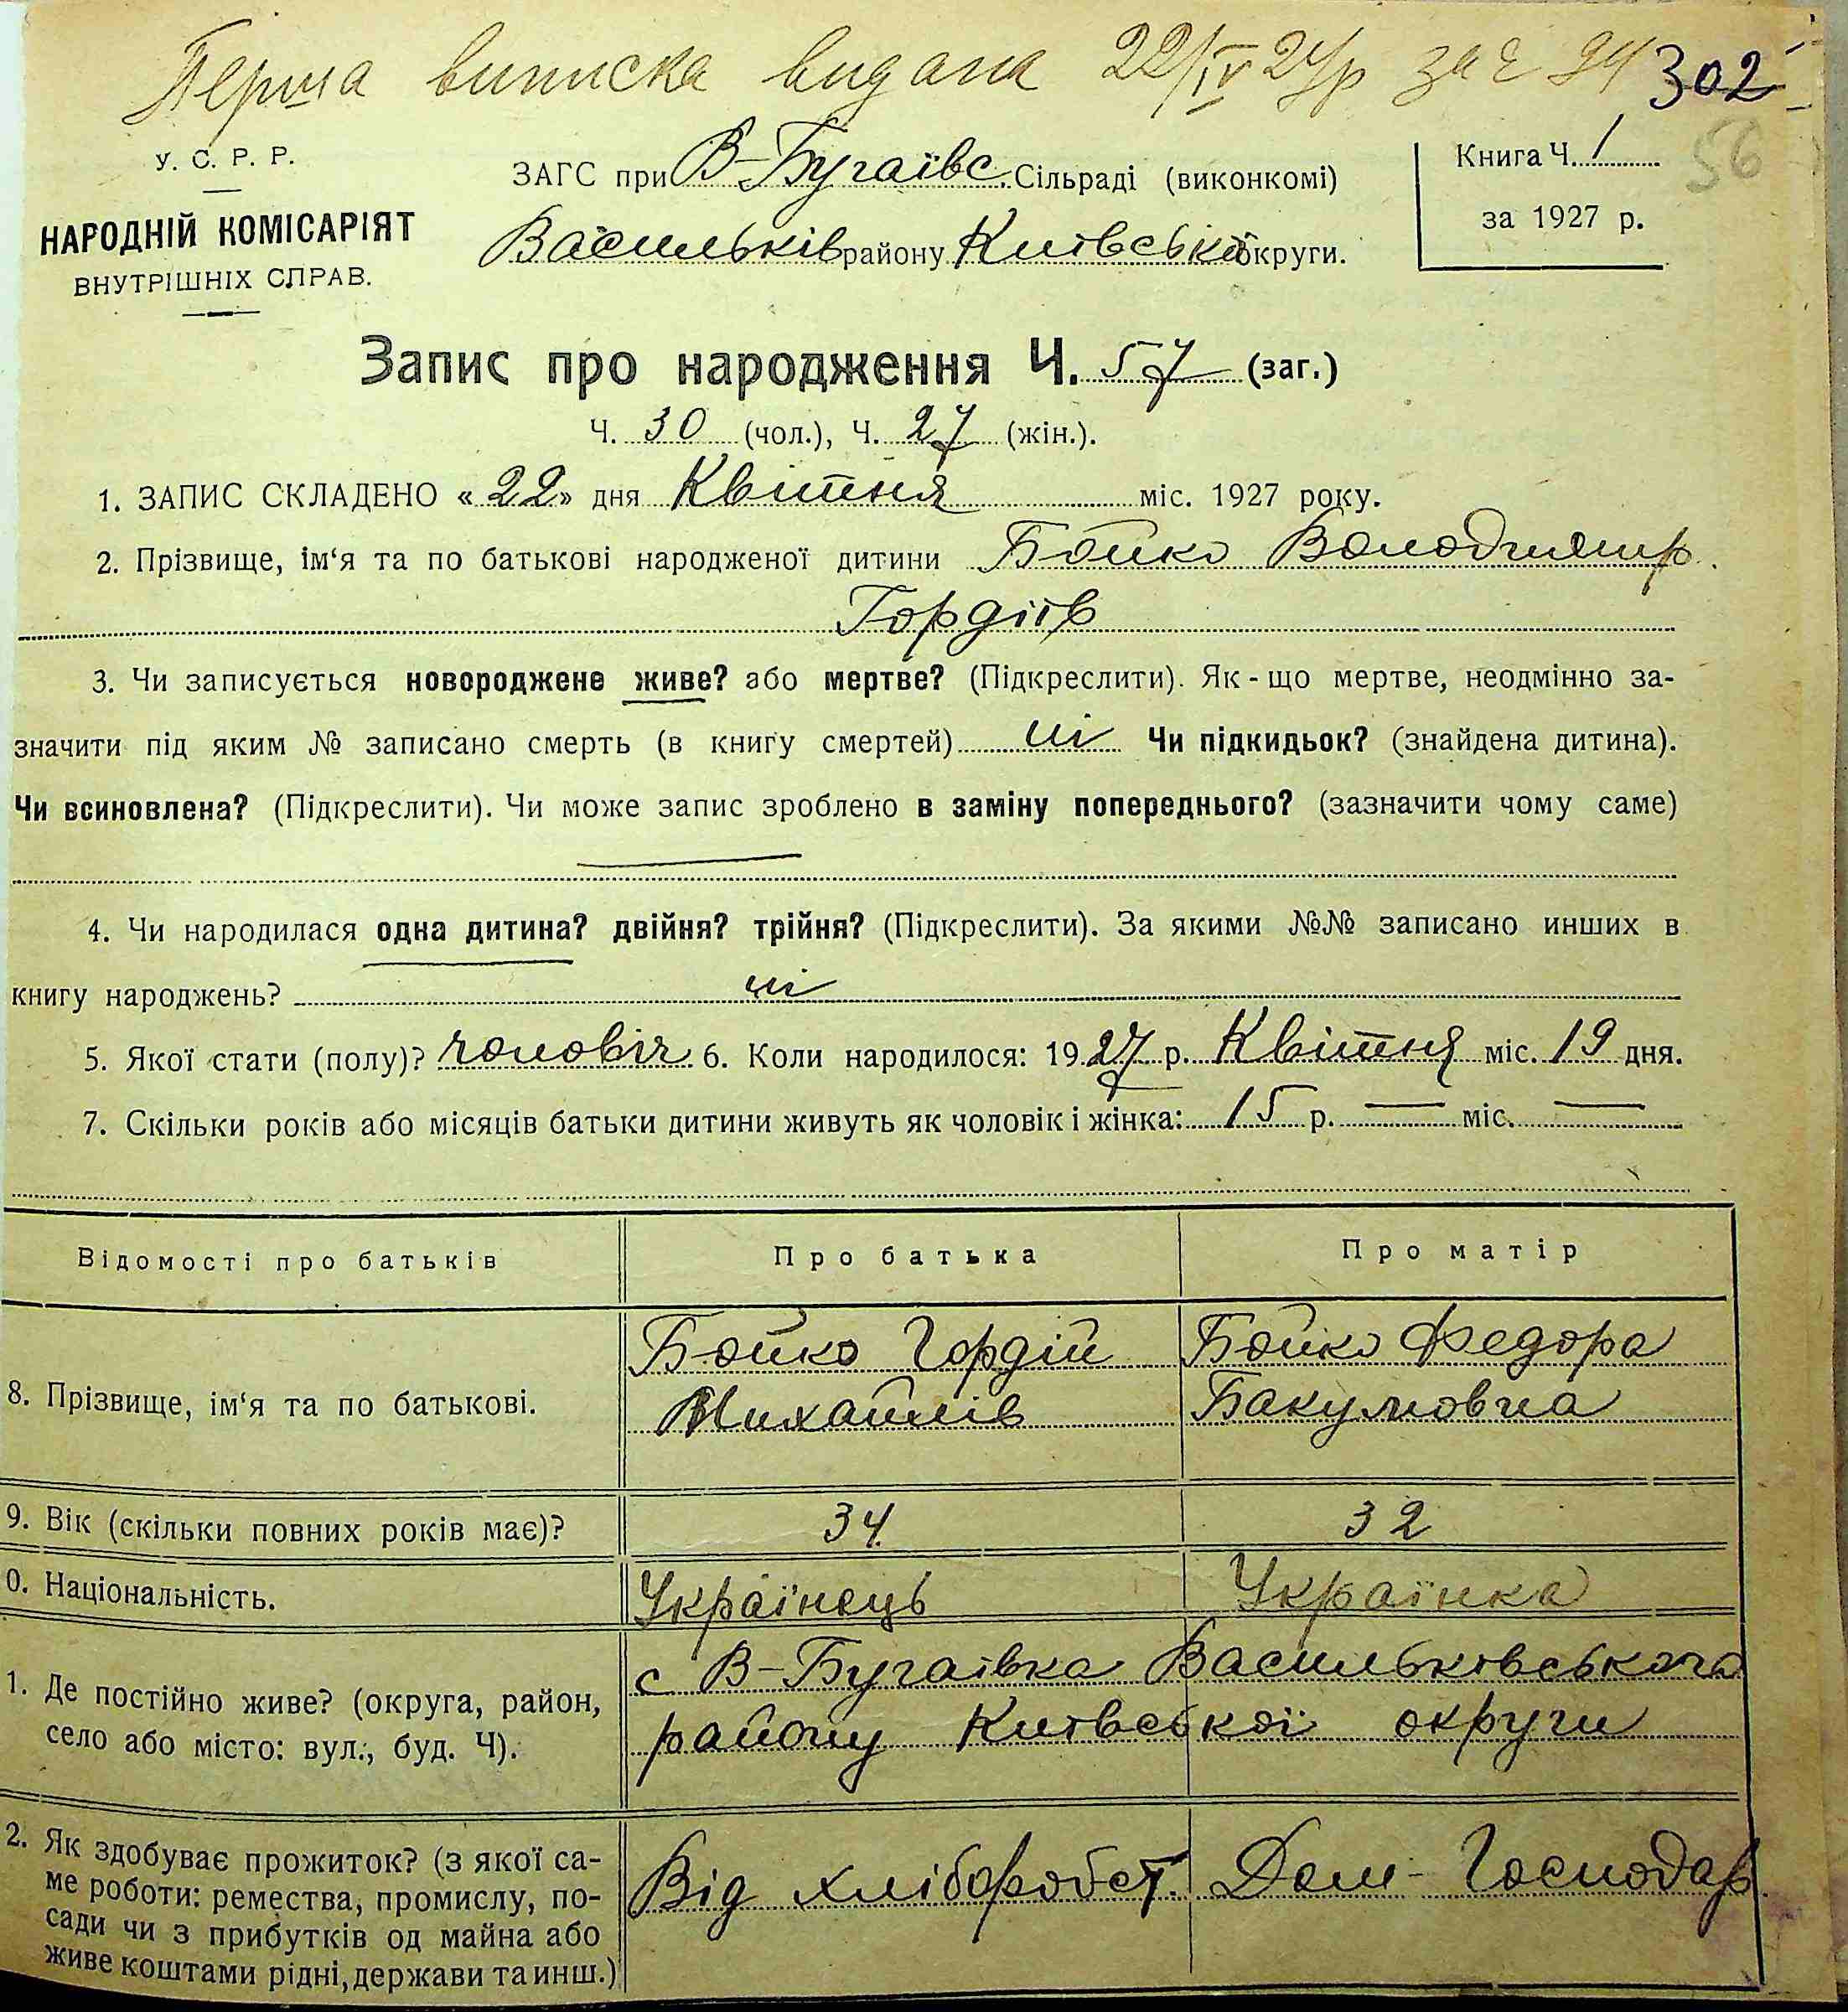 Перша виписка видана 22/IV 27р за Ч 94 302
56
У. С. Р. Р.
НАРОДНІЙ КОМІСАРІЯТ
ВНУТРІШНІХ СПРАВ.
ЗАГС при В-Бугаївс. Сільраді (виконкомі)
Васильків району Київської округи.
Книга Ч. 1
за 1927 р.
Запис про народження Ч. 57 (заг.)
Ч. 30 (чол.), Ч. 27 (жін.).
1. ЗАПИС СКЛАДЕНО «22» дня Квітня міс. 1927 року.
2. Прізвище, ім‘я та по батькові народженої дитини Бойко Володимир
Гордіїв
3. Чи записується новороджене живе? або мертве? (Підкреслити). Як-що мертве, неодмінно за-
значити під яким № записано смерть (в книгу смертей) ні Чи підкидьок? (знайдена дитина).
Чи всиновлена? (Підкреслити). Чи може запис зроблено в заміну попереднього? (зазначити чому саме)
4. Чи народилася одна дитина? двійня? трійня? (Підкреслити). За якими №№ записано инших в
книгу народжень? ні
5. Якої стати (полу)? чоловіч 6. Коли народилося: 1927 р. Квітня міс. 19 дня.
7. Скільки років або місяців батьки дитини живуть як чоловік і жінка: 15 р. — міс. —
Відомості про батьків Про батька Про матір
8. Прізвище, ім‘я та по батькові.
Бойко Гордій
Михайлів
Бойко Федора
Бакумовна
9. Вік (скільки повних років має)? 34. 32
0. Національність. Українець Українка
1. Де постійно живе? (округа, район,
село або місто: вул., буд. Ч).
с В-Бугаївка Васильківського
району Київської округи
2. Як здобуває прожиток? (з якої са-
ме роботи: ремества, промислу, по-
сади чи з прибутків од майна або
живе коштами рідні, держави та инш.)
Від хліборобст.
Дом-Господар